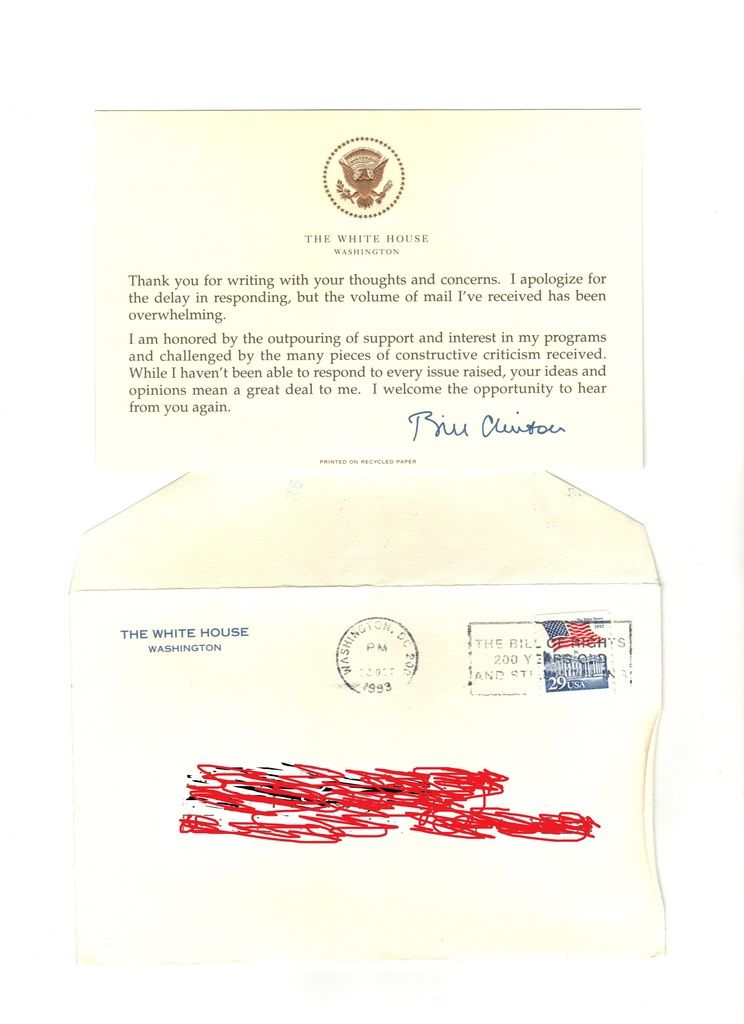 THE WHITE HOUSE
WASHINGTON
Thank you for writing with your thoughts and concerns. I apologize for
the delay in responding, but the volume of mail I've received has been
overwhelming.
I am honored by the outpouring of support and interest in my programs
and challenged by the many pieces of constructive criticism received.
While I haven't been able to respond to every issue raised, your ideas and
opinions mean a great deal to me. I welcome the opportunity to hear
from you again.
Bill Clinton
PRINTED ON RECYCLED PAPER
THE WHITE HOUSE
WASHINGTON
WASHINGTON, DC 200
PM
1993
THE BILL OF RIGHTS
200 YEARS OLD
AND
The White House
1992
29 USA